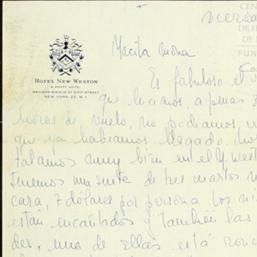 CEN
DE
DE
FUN
HOTEL NEW WESTON
MADISON AVENUE AT 50TH STREET
NEW YORK 22, N.Y.
Mecita mona
Es fabuloso el v
que hicimos a penas
horas de vuelo, no podíamos
que ya habíamos llegado. Nos
talamos muy bien en el N. West
Tenemos una suite de tres cuartos no
cara, 7 dólares por persona. Los ni
están encantados y también las
des, una de ellas está ronc